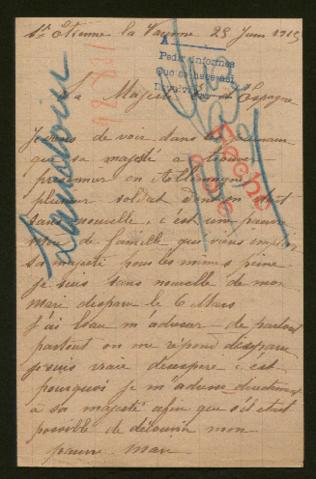 St Etienne la Varenne 28 Juin 1915
A
Pedir informes
Sa Majesté d'Espagne
Je viens de voir dans les journaux
que sa majesté a trouver
prisonnier en Allemagne
plusieur soldat dont on était
sans nouvelle, c'est un pauvre
mère de famille qui viens implorer
sa majesté pous les mêmes peine
je suis sans nouvelle de mon
mari disparue le 6 Mars
j'ai beau m'adresser de partout
partout on me répond disparue
je suis vraie désespere c'est
pourquoi je m'adresse directement
à sa majesté afin que s'il etait
possible de découvrir mon
pauvre mari
Fecho